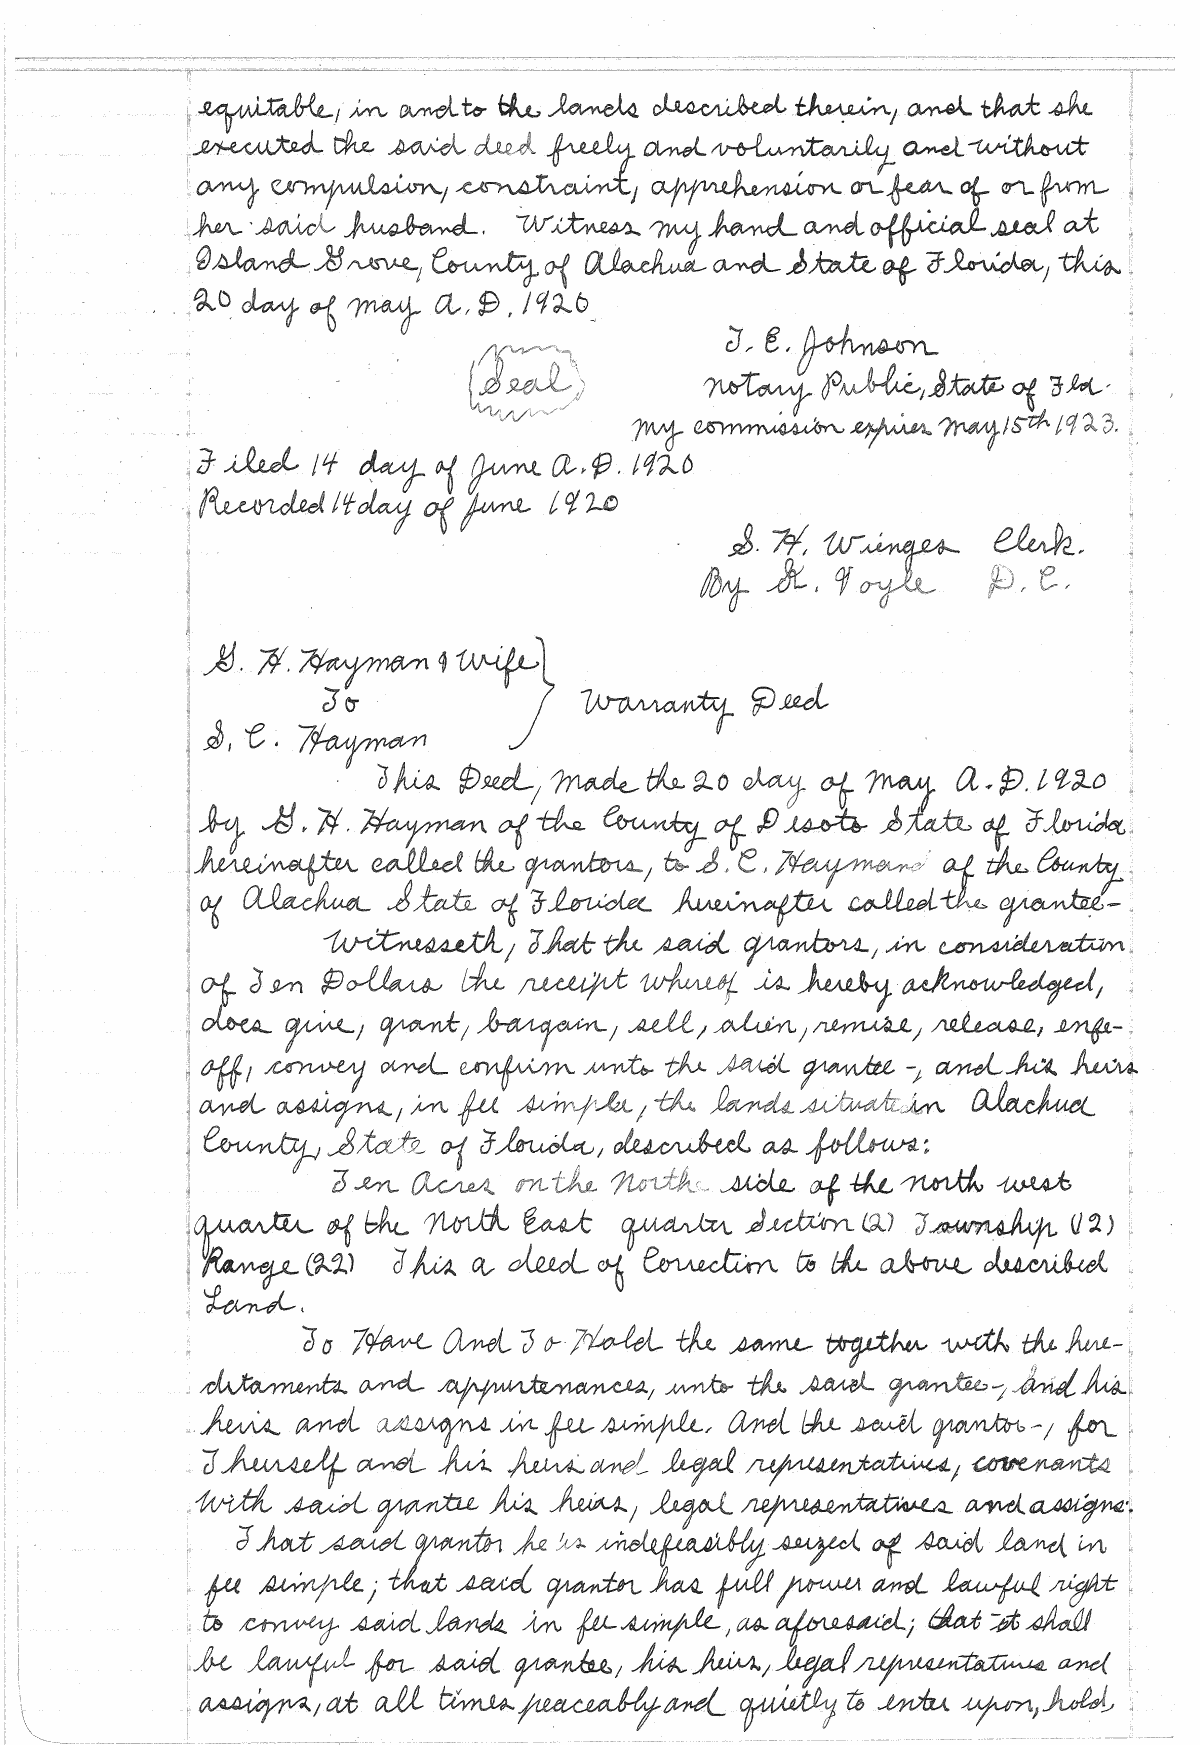 equitable, in and to the lands described therein, and that she
executed the said deed freely and voluntarily and without
any compulsion, constraint, apprehension or fear of or from
her said husband. Witness my hand and official seal at
Island Grove, County of Alachua and State of Florida, this
20 day of May A.D. 1920
T. E. Johnson
(Seal)
Notary Public, State of Fla.
My commission expires May 15th 1923.
Filed 14 day of June A.D. 1920
Recorded 14 day of June 1920
S. H. Wienges Clerk.
By K. Voyle D.C.
G. H. Hayman & Wife
To
Warranty Deed
S. C. Hayman
This Deed, Made the 20 day of May A.D. 1920
by G. H. Hayman of the County of Disoto State of Florida
hereinafter called the grantors, to S. C. Hayman of the County
of Alachua State of Florida hereinafter called the grantee-
Witnesseth, That the said grantors, in consideration
of Ten Dollars the receipt whereof is hereby acknowledged,
does give, grant, bargain, sell, alien, remise, release, enfe-
off, convey and confirm unto the said grantee -, and his heirs
and assigns, in fee simple, the lands situate in Alachua
County, State of Florida, described as follows:
Ten Acres on the North side of the north west
quarter of the North East quarter Section (2) Township (12)
Range (22) This a deed of Correction to the above described
Land.
To Have And To Hold the same together with the here-
ditaments and appurtenances, unto the said grantee-, and his
heirs and assigns in fee simple. And the said grantor -, for
Theirself and his heirs and legal representatives, covenants
With said grantee his heirs, legal representatives and assigns:
That said grantor he is indefeasibly seized of said land in
fee simple; that said grantor has full power and lawful right
to convey said lands in fee simple, as aforesaid; that it shall
be lawful for said grantee, his heirs, legal representatives and
assigns, at all times peaceably and quietly to enter upon, hold,